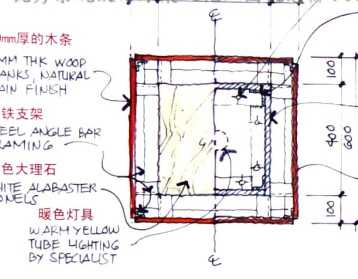 mm厚的木条
MM THK WOOD
ANKS, NATURAL
AIN FINISH
铁支架
EEL ANGLE BAR
RAMING
色大理石
HITE ALABASTER
ANELS
暖色灯具
WARM YELLOW
TUBE LIGHTING
BY SPECIALIST
100
400
600
100